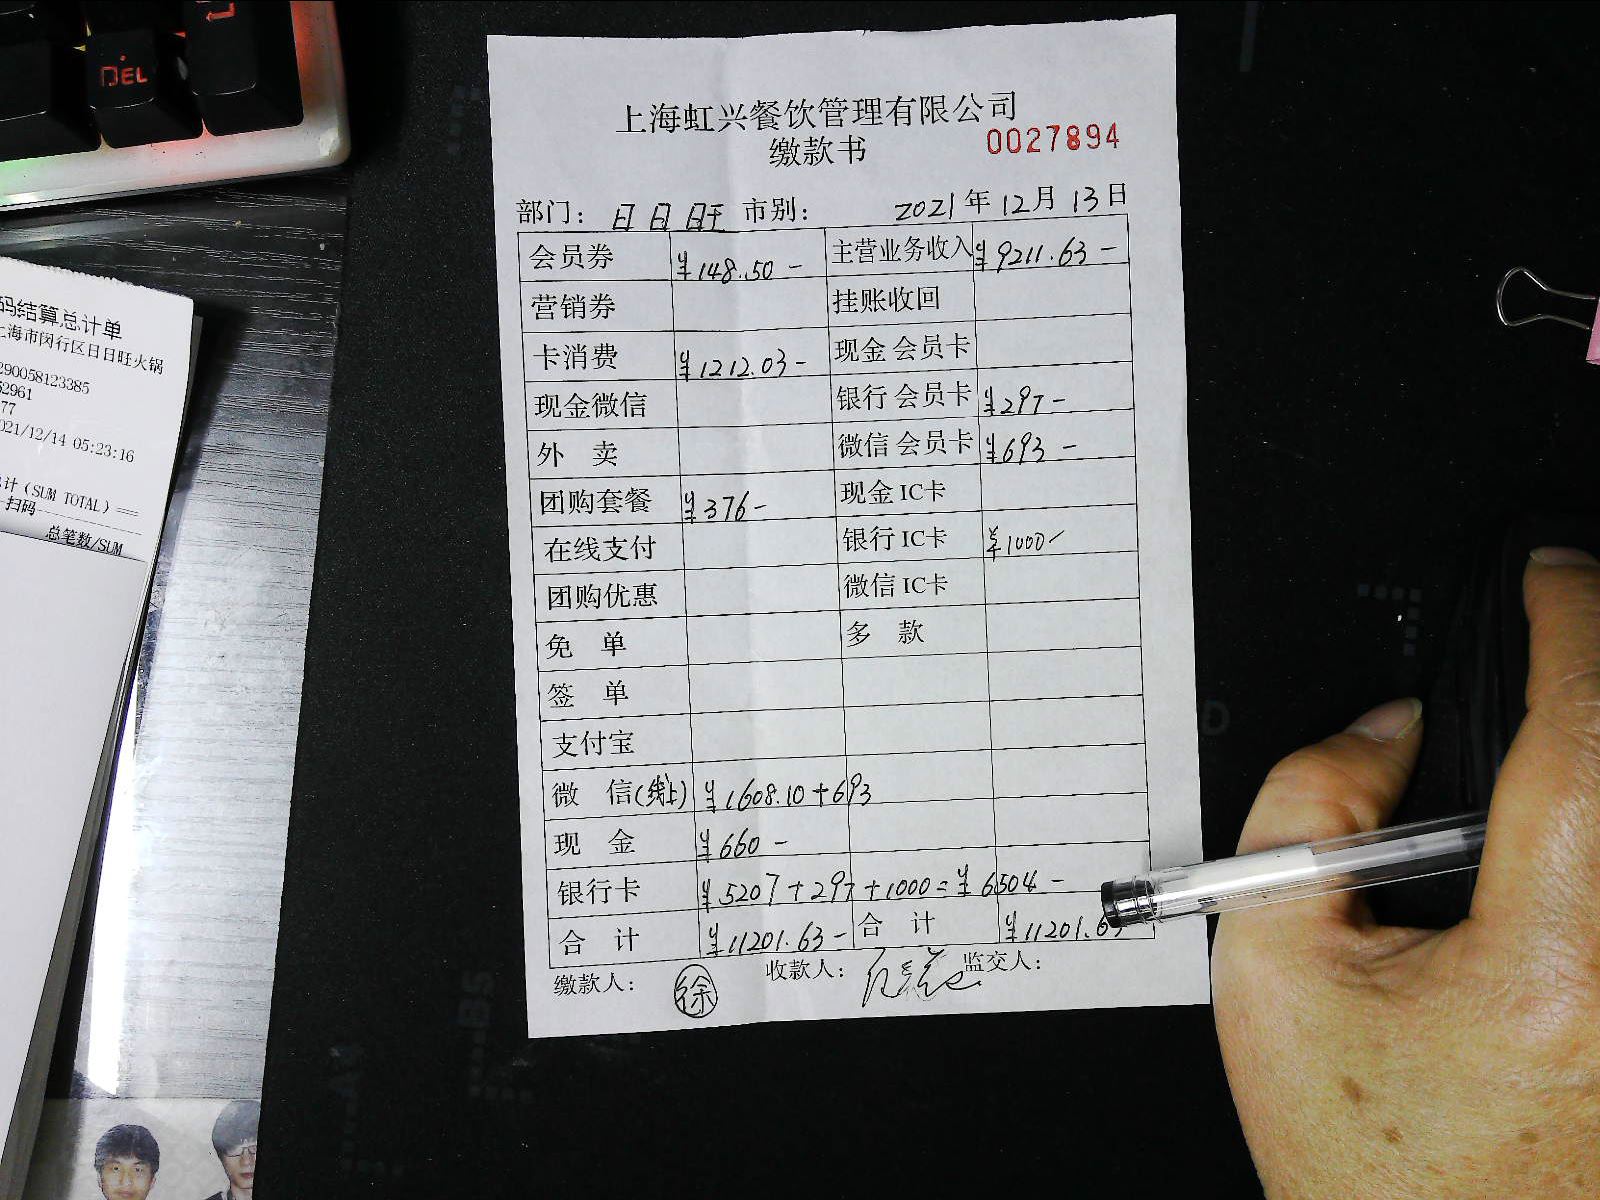 DEL
上海虹兴餐饮管理有限公司
缴款书
0027894
部门： 日日旺 市别： 2021年12月13日
会员券 ¥148.50- 主营业务收入 ¥9211.63-
营销券 挂账收回
卡消费 ¥1212.03- 现金 会员卡
现金微信 银行 会员卡 ¥297-
外 卖 微信 会员卡 ¥693-
团购套餐 ¥376- 现金 IC卡
在线支付 银行 IC卡 ¥1000-
团购优惠 微信 IC卡
免 单 多 款
签 单
支付宝
微 信(线上) ¥1608.10+693
现 金 ¥660-
银行卡 ¥5207+297+1000=¥6504-
合 计 ¥11201.63- 合 计 ¥11201.63
缴款人： 徐 收款人： 监交人：
码结算总计单
上海市闵行区日日旺火锅
290058123385
52961
77
021/12/14 05:23:16
计(SUM TOTAL)
扫码
总笔数/SUM